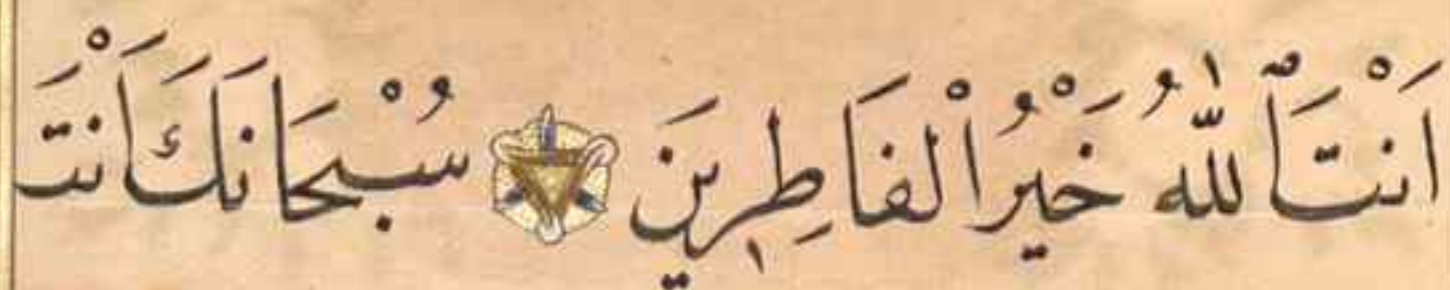 اَنْتَ ٱللّٰهُ خَيْرُ الْفَاطِرِينَ سُبْحَانَكَ اَنْتَ